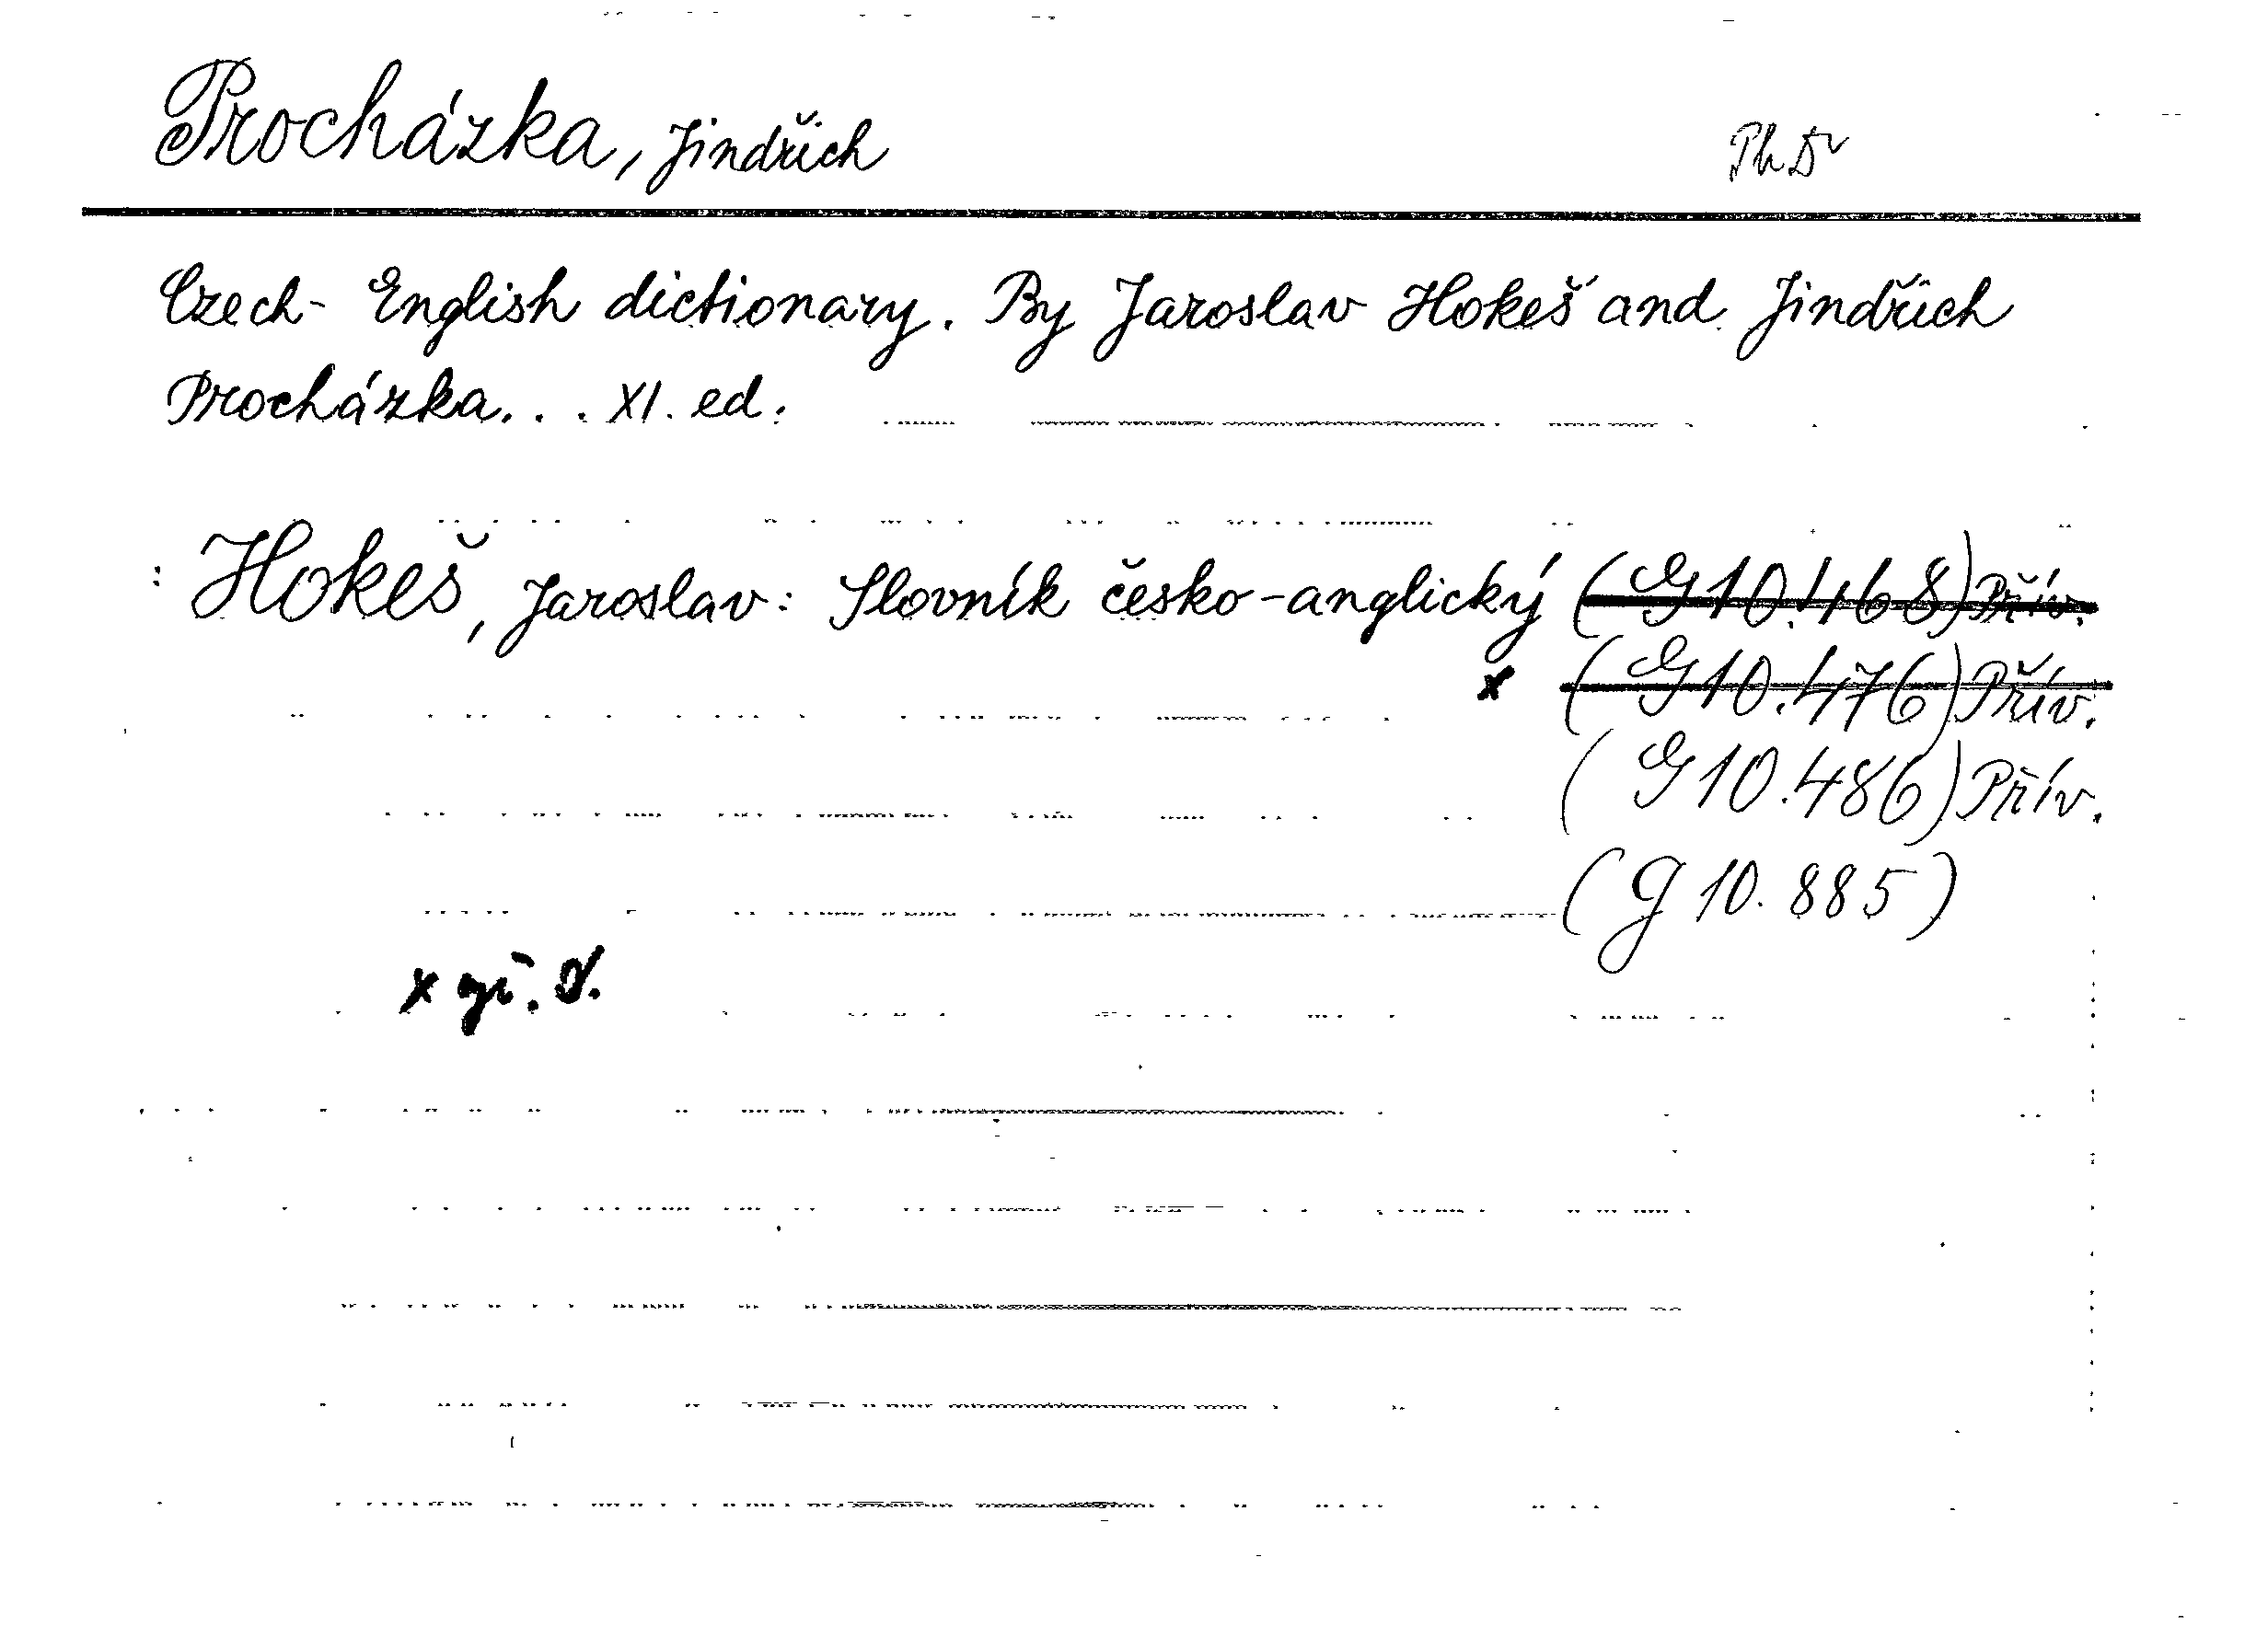 Procházka, Jindřich PhDr
Czech-English dictionary. By Jaroslav Hokeš and Jindřich
Procházka... XI. ed.
: Hokeš, Jaroslav: Slovník česko-anglický (G10.468) Přív.
x (G10.476) Přív.
(G10.486) Přív.
(G 10.885)
x